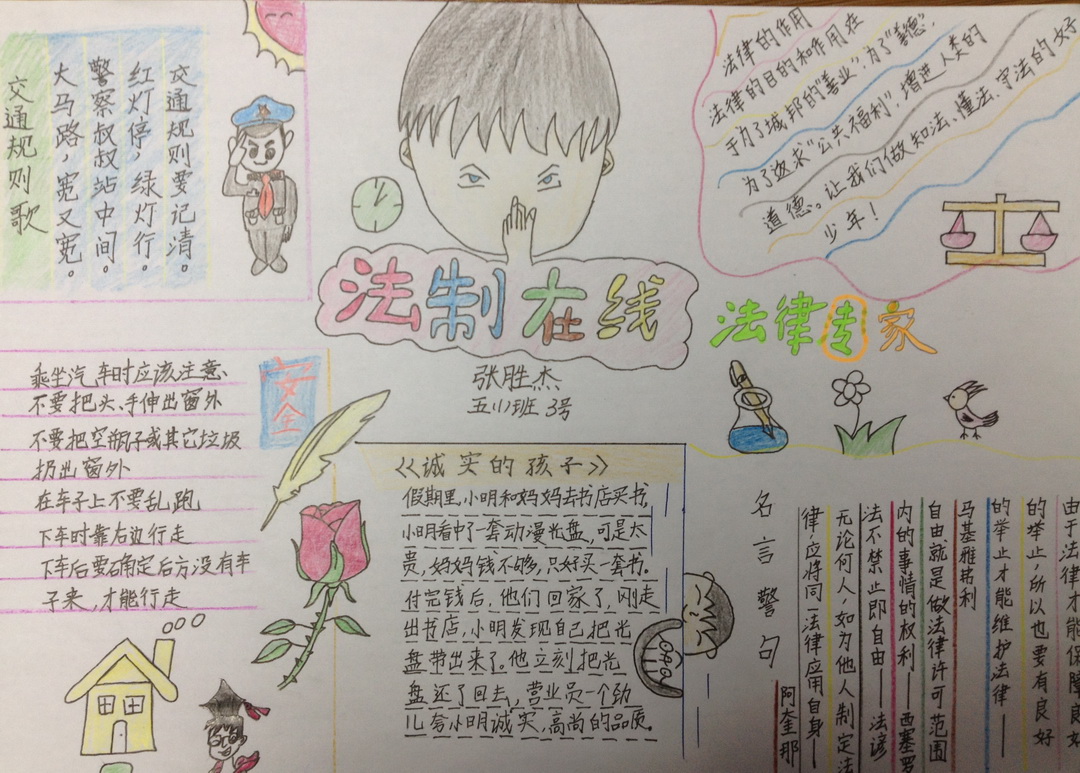 交通规则歌
大马路，宽又宽。
警察叔叔站中间。
红灯停，绿灯行。
交通规则要记清。
法制在线
张胜杰
五(1)班 3号
法律的作用
法律的目的和作用在
于为了城邦的“善业”，为了“善德”，
为了追求“公共福利”，增进人类的
道德。让我们做知法、懂法、守法的好
少年！
法律专家
安全
乘坐汽车时应该注意、
不要把头、手伸出窗外
不要把空瓶子或其它垃圾
扔出窗外
在车子上不要乱跑
下车时靠右边行走
下车后要确定后方没有车
子来，才能行走
《诚实的孩子》
假期里，小明和妈妈去书店买书，
小明看中了一套动漫光盘，可是太
贵，妈妈钱不够，只好买一套书。
付完钱后，他们回家了，刚走
出书店，小明发现自己把光
盘带出来了。他立刻把光
盘还了回去，营业员一个劲
儿夸小明诚实，高尚的品质。
名言警句
由于法律才能保障良好
的举止，所以也要有良好
的举止才能维护法律——
马基雅弗利
自由就是做法律许可范围
内的事情的权利——西塞罗
法不禁止即自由——法谚
无论何人，如为他人制定法
律，应将同一法律应用自身—
阿奎那